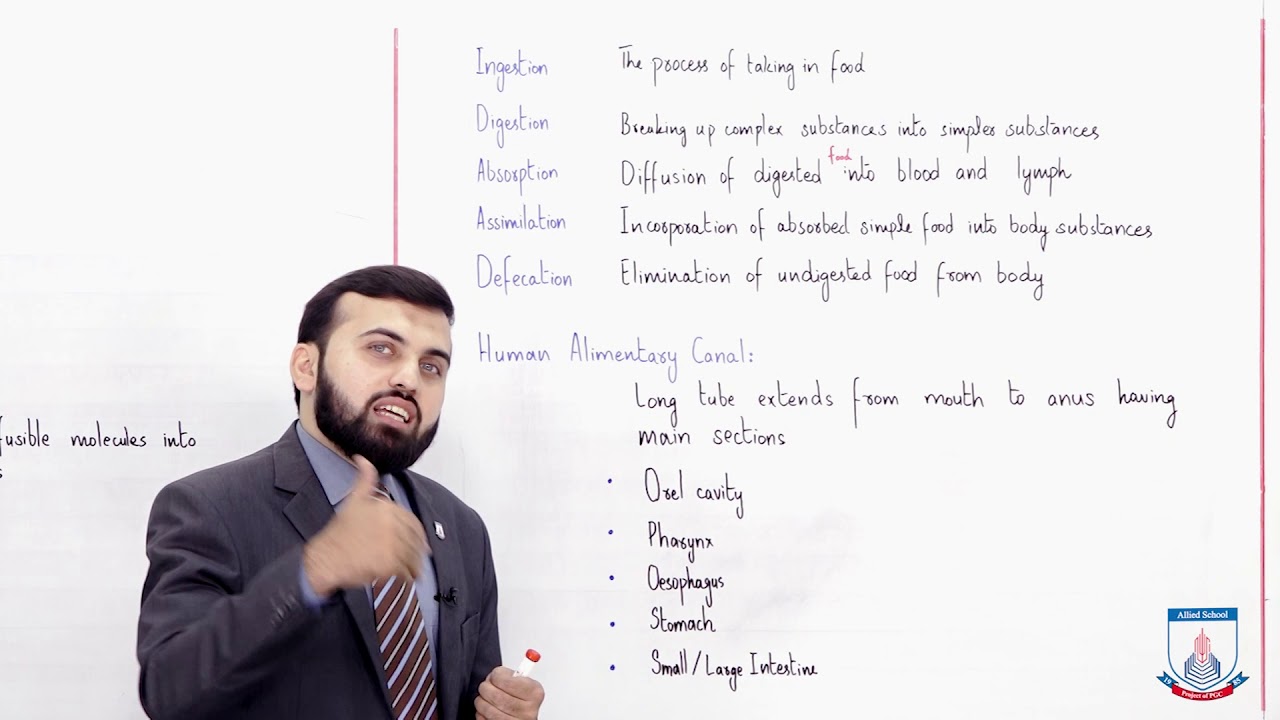 Ingestion The process of taking in food
Digestion Breaking up complex substances into simpler substances
Absorption Diffusion of digested food into blood and lymph
Assimilation Incorporation of absorbed simple food into body substances
Defecation Elimination of undigested food from body
Human Alimentary Canal:
Long tube extends from mouth to anus having
main sections
• Orel cavity
• Pharynx
• Oesophagus
• Stomach
• Small/Large Intestine
fusible molecules into
s
Allied School
19 85
Project of PGC